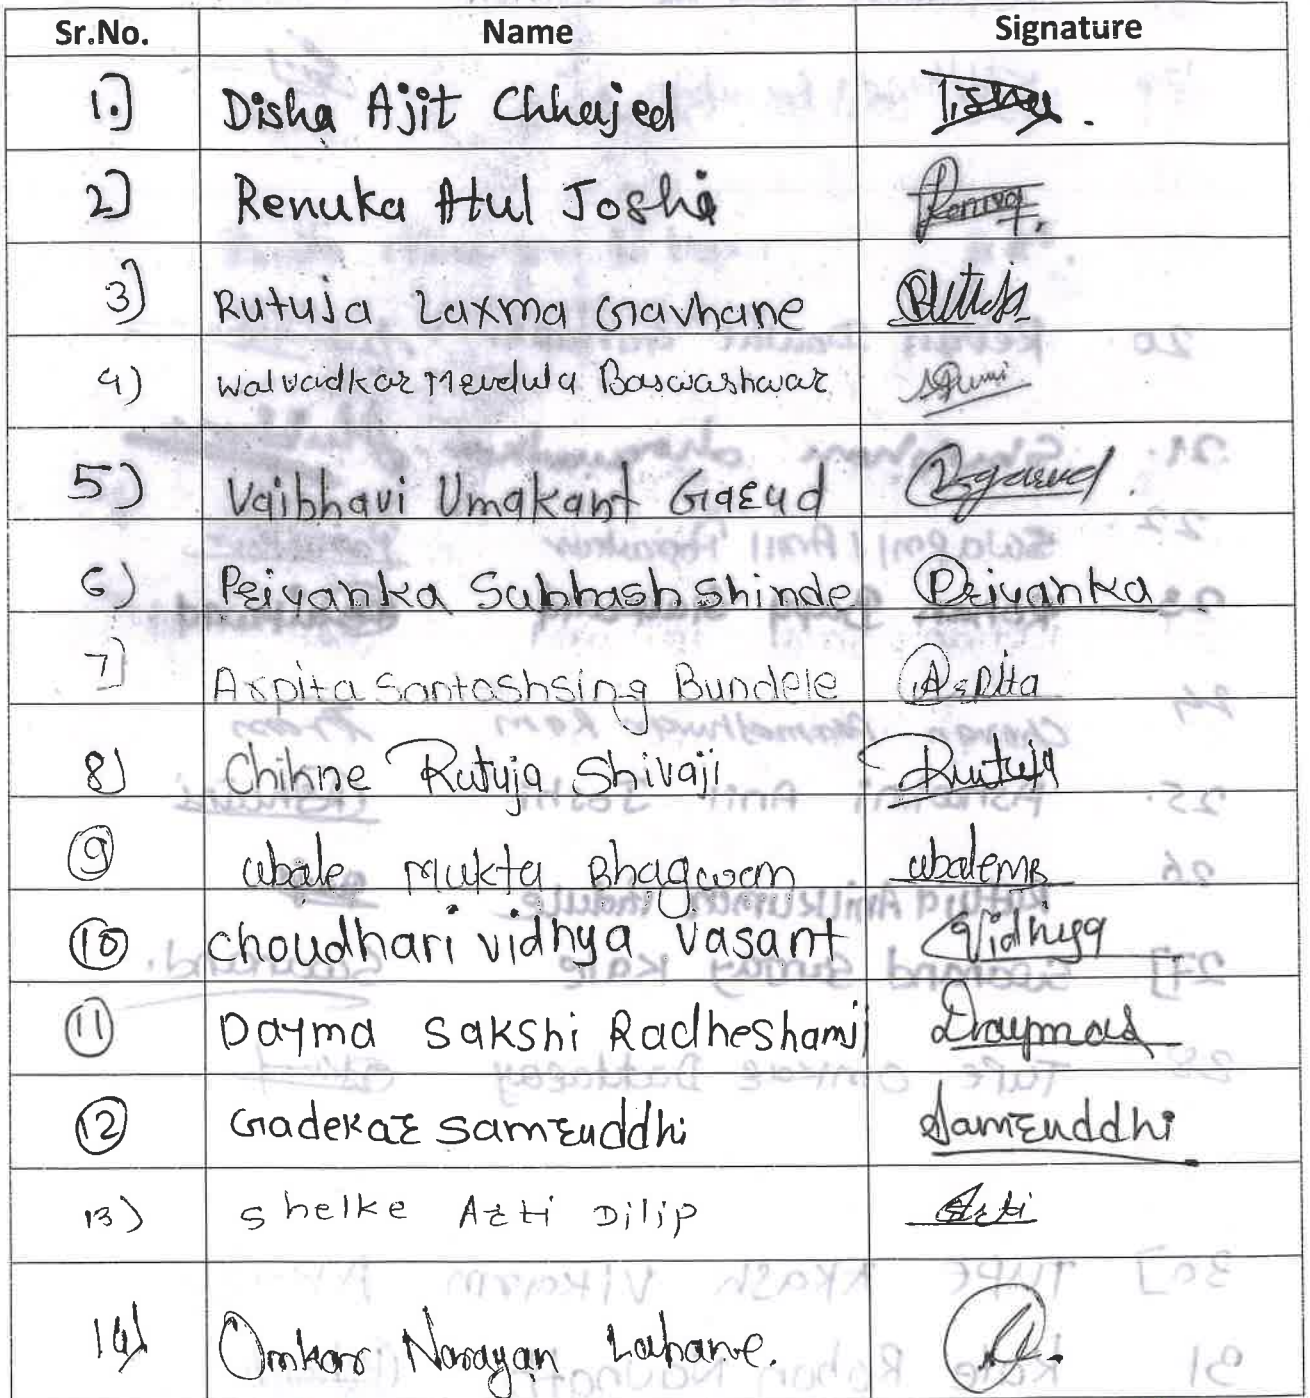 Sr.No. Name Signature
1.] Disha Ajit Chhajed Disha.
2] Renuka Atul Joshi Renuka.
3] Rutuja Laxma Gavhane Rutuja
4) Walvadkar Mrudula Baswashwar
5) Vaibhavi Umakant Garud
6) Priyanka Subhash Shinde Priyanka
7] Arpita Santoshsing Bundele Arpita
8) Chikne Rutuja Shivaji Rutuja
9 Ubale Mukta Bhagwan UbaleMB
10 Choudhari Vidhya Vasant Vidhya
11 Dayma Sakshi Radheshamji
12 Gadekar Samruddhi Samruddhi
13) Shelke Arti Dilip Arti
14) Omkar Narayan Lahane.